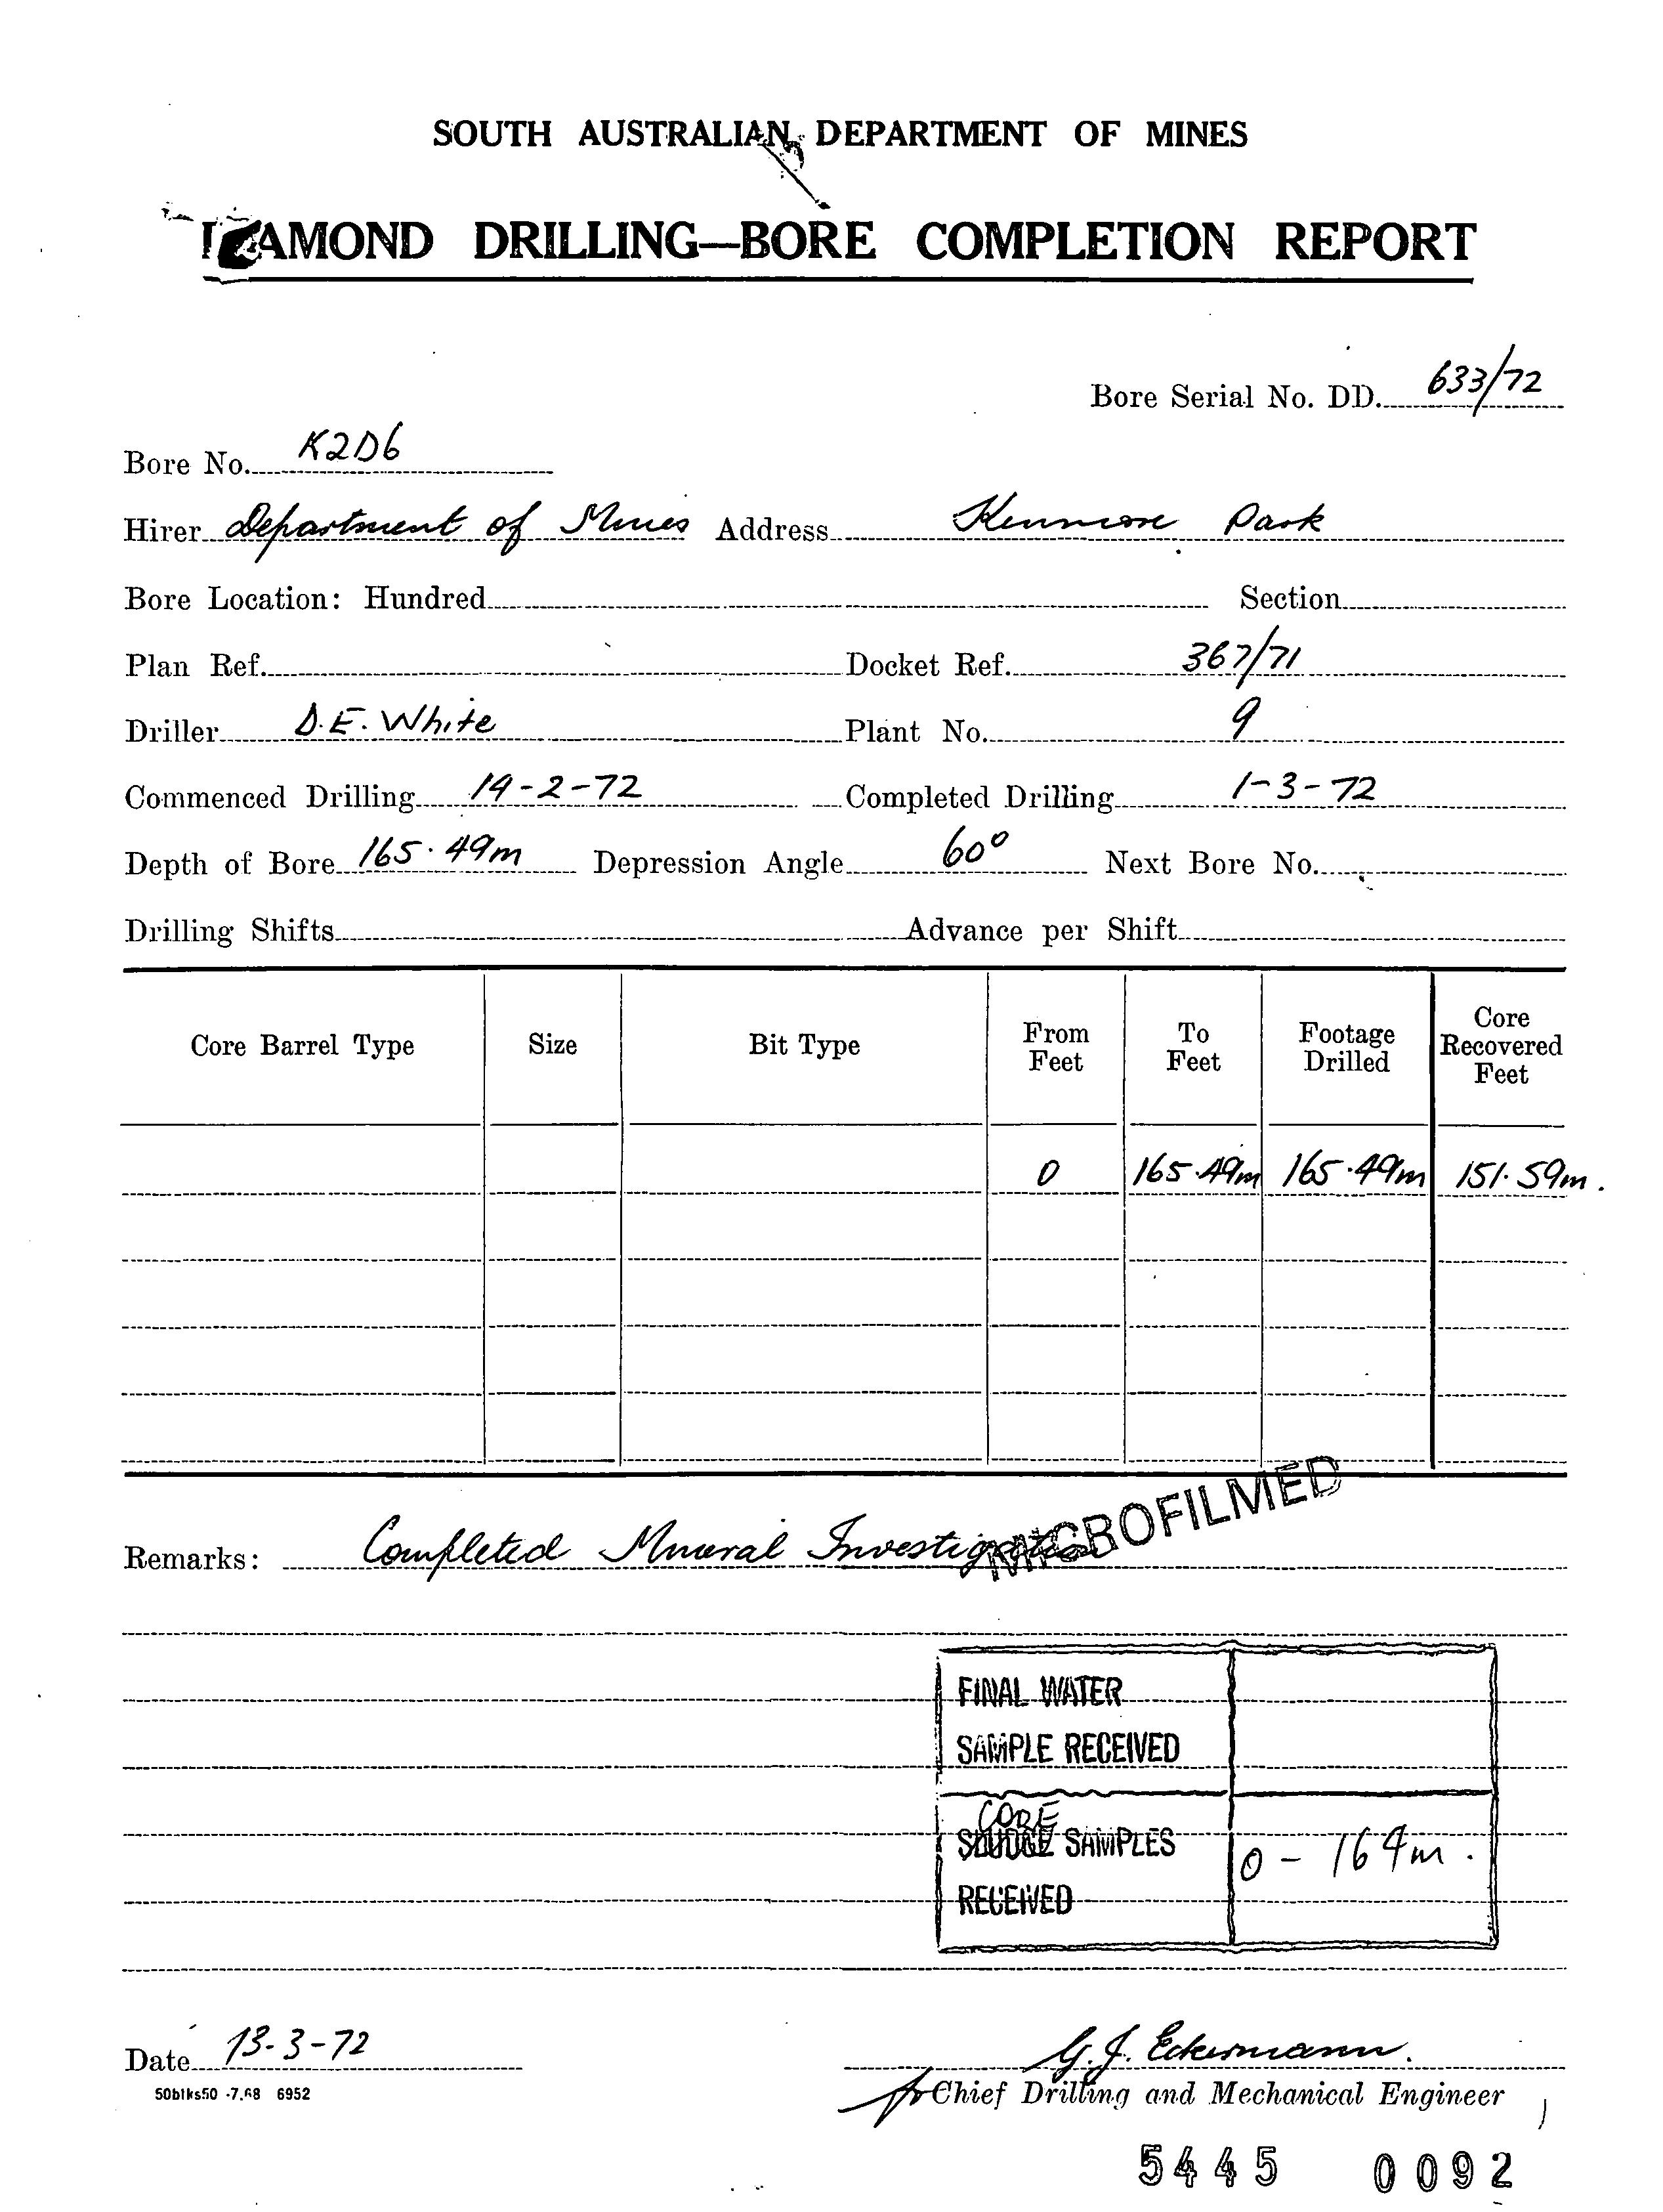 SOUTH AUSTRALIAN DEPARTMENT OF MINES
DIAMOND DRILLING—BORE COMPLETION REPORT
Bore Serial No. DD. 633/72
Bore No. K2D6
Hirer Department of Mines Address Kenmore Park
Bore Location: Hundred Section
Plan Ref. Docket Ref. 367/71
Driller D.E. White Plant No. 9
Commenced Drilling 19-2-72 Completed Drilling 1-3-72
Depth of Bore 165.49m Depression Angle 60° Next Bore No.
Drilling Shifts Advance per Shift
Core Barrel Type Size Bit Type From Feet To Feet Footage Drilled Core Recovered Feet
0 165.49m 165.49m 151.59m.
MICROFILMED
Remarks: Completed Mineral Investigation
FINAL WATER
SAMPLE RECEIVED
CORE
SLUDGE SAMPLES 0 - 164m.
RECEIVED
Date 13-3-72 G.J. Eckermann.
for Chief Drilling and Mechanical Engineer
50blks50 -7.68 6952
5445 0092